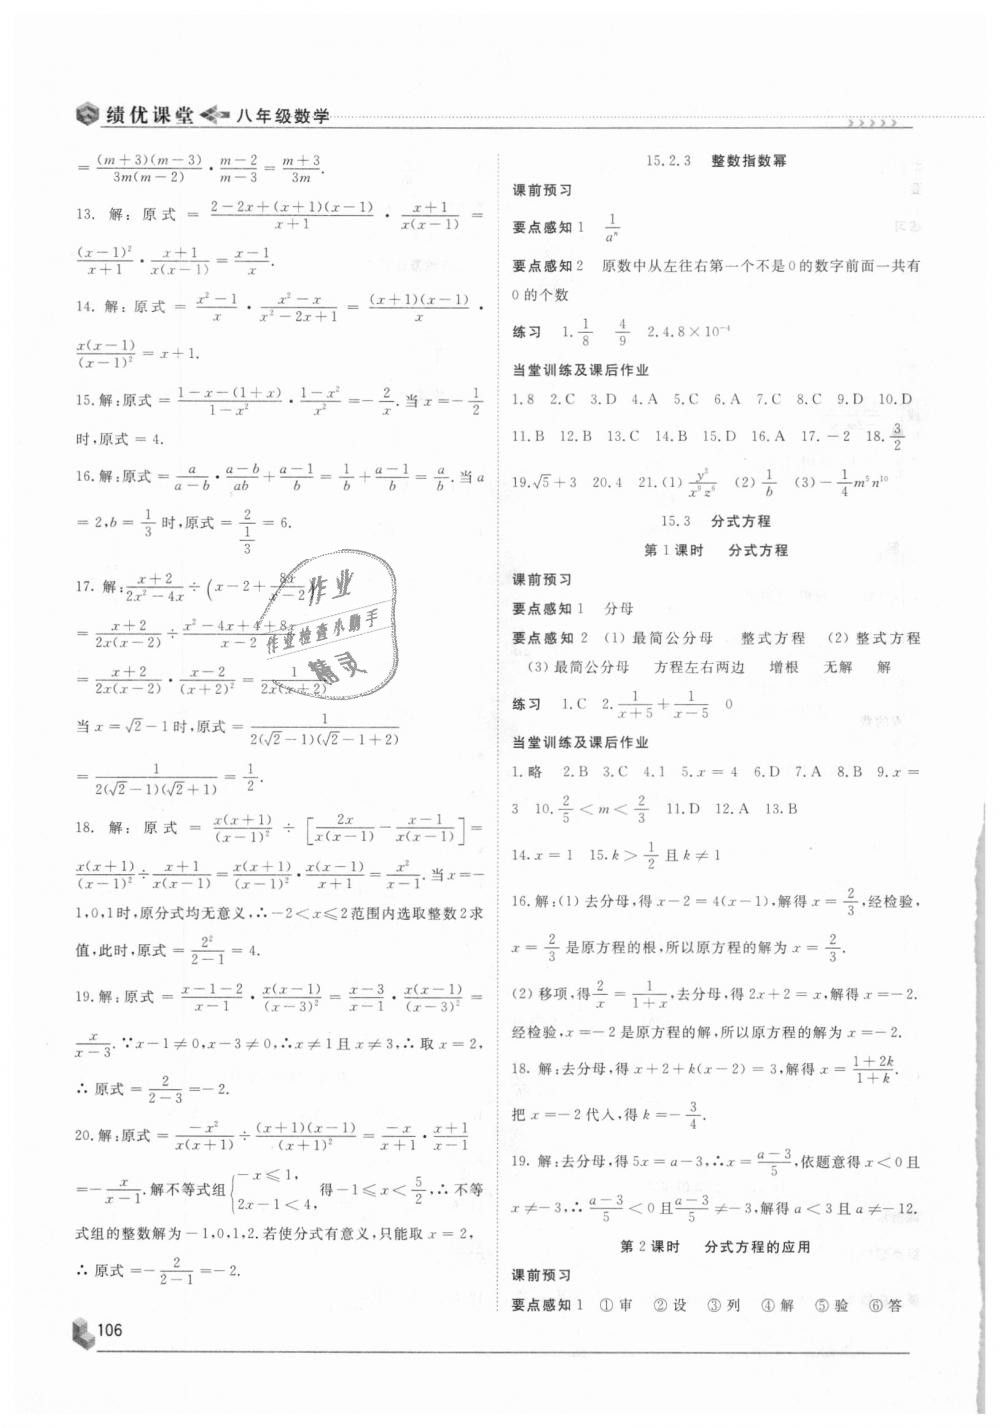 绩优课堂 八年级数学
= (m+3)(m-3)/3m(m-2) · (m-2)/(m-3) = (m+3)/3m.
13. 解：原式 = (2-2x+(x+1)(x-1))/(x+1) · (x+1)/x(x-1) =
(x-1)²/(x+1) · (x+1)/x(x-1) = (x-1)/x.
14. 解：原式 = (x²-1)/x · (x²-x)/(x²-2x+1) = (x+1)(x-1)/x ·
x(x-1)/(x-1)² = x+1.
15. 解：原式 = (1-x-(1+x))/(1-x²) · (1-x²)/x² = -2/x. 当 x = -1/2
时,原式 = 4.
16. 解：原式 = a/(a-b) · (a-b)/ab + (a-1)/b = 1/b + (a-1)/b = a/b. 当 a
= 2,b = 1/3 时,原式 = 2/(1/3) = 6.
17. 解：(x+2)/(2x²-4x) ÷ (x-2+8x/(x-2))
= (x+2)/2x(x-2) ÷ (x²-4x+4+8x)/(x-2)
= (x+2)/2x(x-2) · (x-2)/(x+2)² = 1/2x(x+2)
当 x = √2-1 时,原式 = 1/2(√2-1)(√2-1+2)
= 1/2(√2-1)(√2+1) = 1/2.
18. 解：原式 = x(x+1)/(x-1)² ÷ [2x/x(x-1) - (x-1)/x(x-1)] =
x(x+1)/(x-1)² ÷ (x+1)/x(x-1) = x(x+1)/(x-1)² · x(x-1)/(x+1) = x²/(x-1). 当 x = -
1,0,1时,原分式均无意义,∴-2<x≤2范围内选取整数2求
值,此时,原式 = 2²/(2-1) = 4.
19. 解：原式 = (x-1-2)/(x-1) · x(x-1)/(x-3)² = (x-3)/(x-1) · x(x-1)/(x-3)² =
x/(x-3). ∵x-1≠0,x-3≠0,∴x≠1且x≠3,∴取x=2,
∴原式 = 2/(2-3) = -2.
20. 解：原式 = -x²/x(x+1) ÷ (x+1)(x-1)/(x+1)² = -x/(x+1) · (x+1)/(x-1)
= -x/(x-1). 解不等式组{-x≤1, 2x-1<4, 得-1≤x<5/2,∴不等
式组的整数解为-1,0,1,2.若使分式有意义,只能取x=2,
∴原式 = -2/(2-1) = -2.
作业
作业检查小助手
精灵
106
15.2.3 整数指数幂
课前预习
要点感知1 1/aⁿ
要点感知2 原数中从左往右第一个不是0的数字前面一共有
0的个数
练习 1. 1/8 4/9 2. 4.8×10⁻⁴
当堂训练及课后作业
1.8 2.C 3.D 4.A 5.C 6.A 7.C 8.C 9.D 10.D
11.B 12.B 13.C 14.B 15.D 16.A 17.-2 18. 3/2
19.√5+3 20.4 21.(1) y³/x⁹z⁶ (2) 1/b (3) -1/4 m⁵n¹⁰
15.3 分式方程
第1课时 分式方程
课前预习
要点感知1 分母
要点感知2 (1)最简公分母 整式方程 (2)整式方程
(3)最简公分母 方程左右两边 增根 无解 解
练习 1.C 2. 1/(x+5) + 1/(x-5) 0
当堂训练及课后作业
1.略 2.B 3.C 4.1 5.x=4 6.D 7.A 8.B 9.x=
3 10. 2/5<m<2/3 11.D 12.A 13.B
14.x=1 15.k>1/2且k≠1
16.解：(1)去分母,得x-2=4(x-1),解得x=2/3,经检验,
x=2/3是原方程的根,所以原方程的解为x=2/3.
(2)移项,得2/x=1/(1+x),去分母,得2x+2=x,解得x=-2.
经检验,x=-2是原方程的解,所以原方程的解为x=-2.
18. 解：去分母,得x+2+k(x-2)=3,解得x=(1+2k)/(1+k).
把x=-2代入,得k=-3/4.
19. 解：去分母,得5x=a-3,∴x=(a-3)/5,依题意得x<0且
x≠-3,∴(a-3)/5<0且(a-3)/5≠-3,解得a<3且a≠-12.
第2课时 分式方程的应用
课前预习
要点感知1 ①审 ②设 ③列 ④解 ⑤验 ⑥答